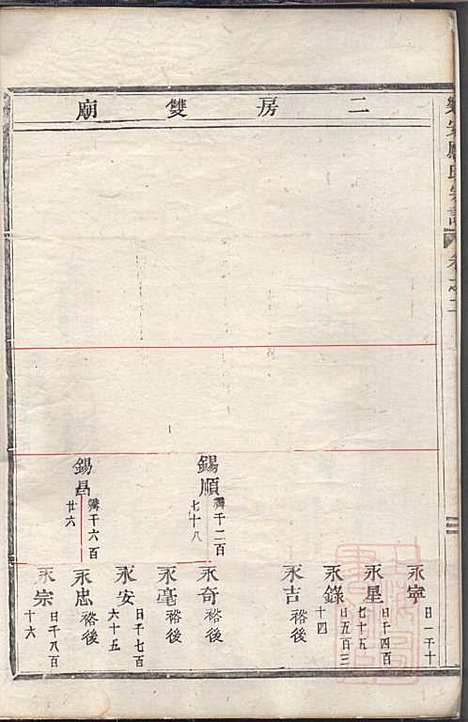 二房雙廟
氏宗譜
卷之二
錫順
千二百
七十八
錫昌
千六百
廿六
永寧
日一千十
永星
日千四百
七十五
永錄
日五百三
十四
永吉
裕後
永奇
裕後
永亳
裕後
永安
日千七百
六十五
永忠
裕後
永宗
日千八百
十六